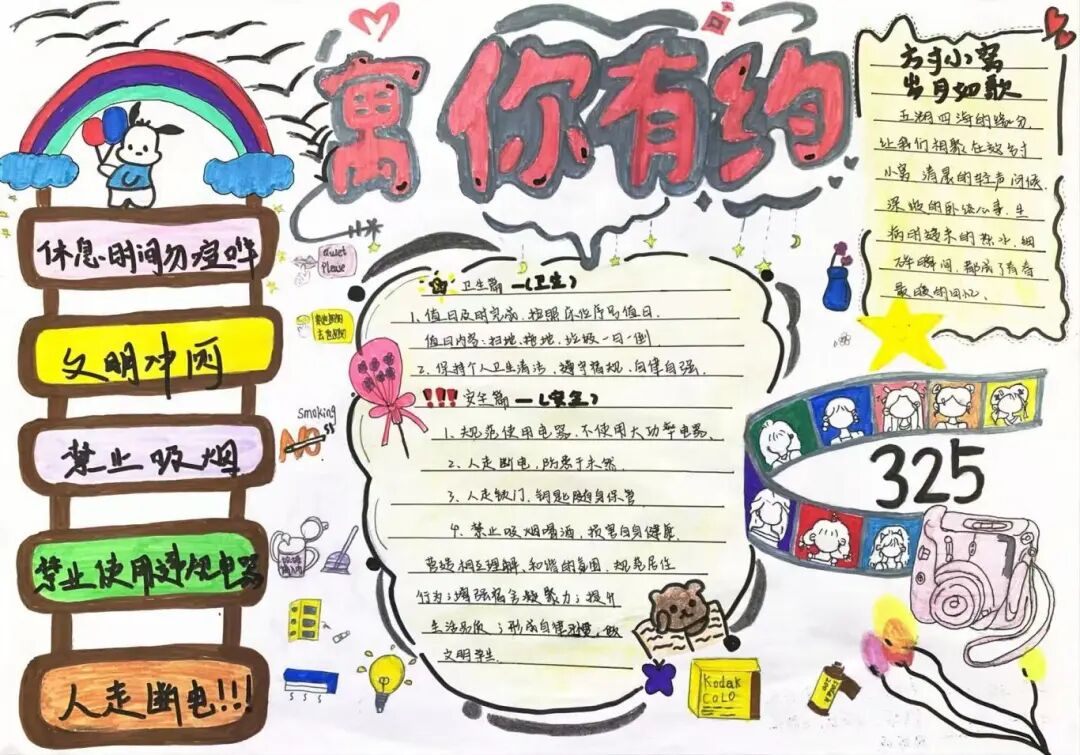 寓你有约
休息时间勿喧哗
文明冲雨
禁止吸烟
禁止使用违规电器
人走断电!!!
Quiet
Please
smoking
NO
卫生篇 一(卫生)
1、值日及时完成,按照床位序号值日.
值日内容:扫地、拖地、垃圾一日一倒
2、保持个人卫生清洁,遵守宿规、自律自强.
!!! 安全篇 一(安全)
1、规范使用电器、不使用大功率电器、
2、人走断电,防患于未然.
3、人走锁门、钥匙随身保管
4、禁止吸烟喝酒,损害自身健康.
营造相互理解、和谐的氛围、规范居住
行为;增强宿舍凝聚力;提升
生活品质;形成自律习惯,做
文明学生.
方寸小窝
岁月如歌
五湖四海的缘分,
让我们相聚在这方寸
小窝 清晨的轻声问候、
深夜的卧谈心事、生
病时递来的热水、细
碎瞬间,都成了青春
最暖的回忆、
325
Kodak
COLO